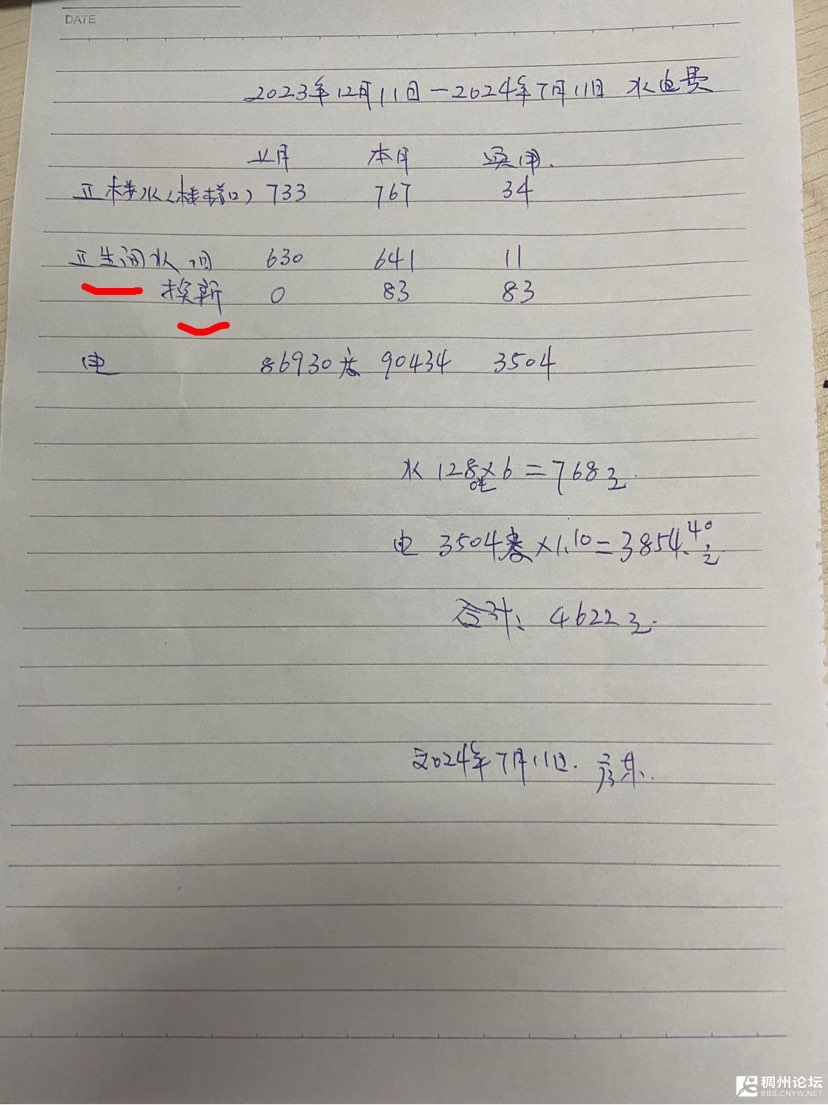 DATE
2023年12月11日一2024年7月11日 水电费
上月 本月 实用.
五楼水(楼梯口) 733 767 34
卫生间水 旧 630 641 11
换新 0 83 83
电 86930 90434 3504
水 128吨×6=768元.
电 3504度×1.10=3854.40元
合计: 4622元.
2024年7月11日. 房东.
稠州论坛
BBS.CNYW.NET